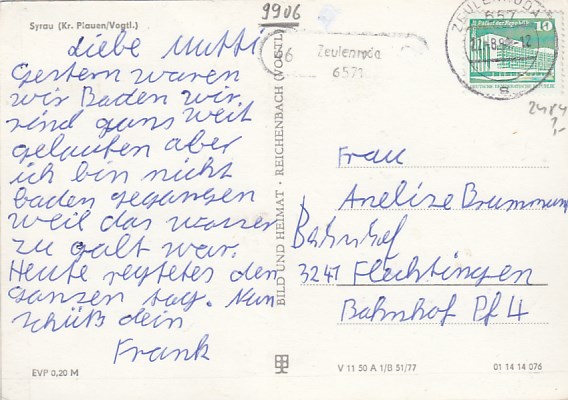 9906
Syrau (Kr. Plauen/Vogtl.)
Liebe Mutti
Gestern waren
wir Baden wir
sind gans weit
gelaufen aber
ich bin nicht
baden gegangen
weil das wasser
zu galt war.
Heute regtetes den
ganzen tag. Nun
schüß dein
Frank
EVP 0,20 M
BILD UND HEIMAT · REICHENBACH (VOGTL)
Zeulenroda
6571
ZEULENRODA
657
Palast der Republik
10
DEUTSCHE DEMOKRATISCHE REPUBLIK
2484
Frau
Anelise Brummund
Bahnhof
3241 Flechtingen
Bahnhof Pf 4
V 11 50 A 1/B 51/77
01 14 14 076